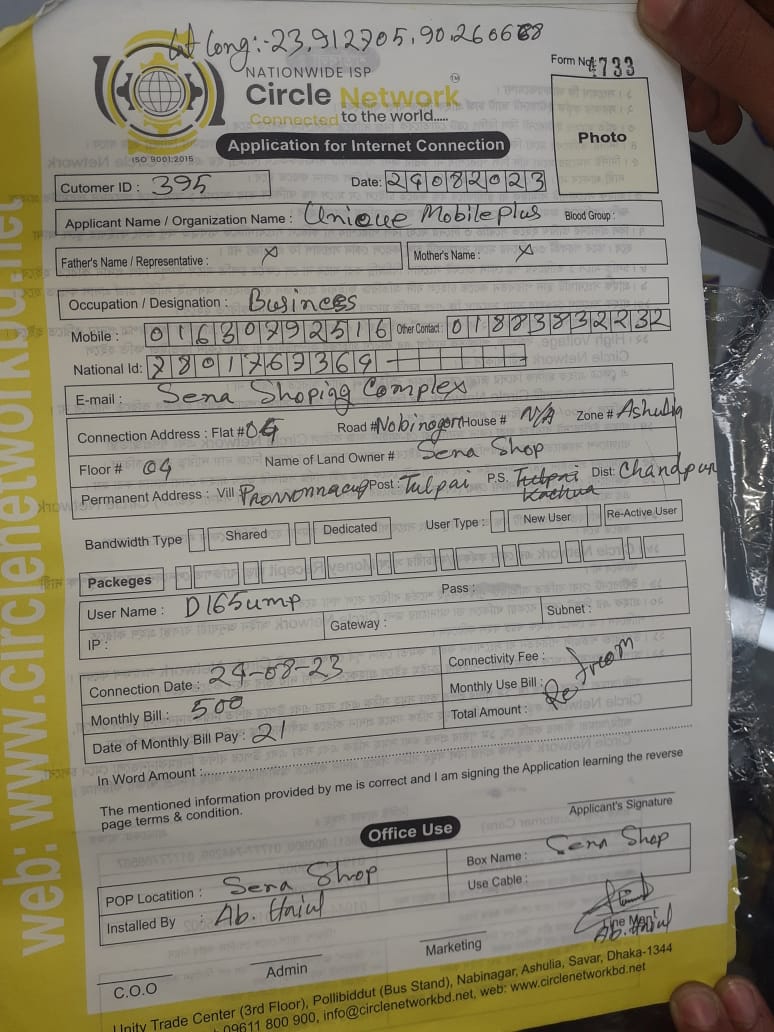 Lat Long:-23.912705,90.260668
NATIONWIDE ISP
Form No: 4733
Circle Network™
Connected to the world.....
ISO 9001:2015
Application for Internet Connection
Photo
Cutomer ID : 395
Date: 24082023
Applicant Name / Organization Name : Unique Mobile plus Blood Group :
Father's Name / Representative : x Mother's Name : x
Occupation / Designation : Business
Mobile : 01630792516 Other Contact : 01883832232
National Id: 7801767369
E-mail : Sena Shoping Complex
Connection Address : Flat # 04 Road # Nobinogor House # N/A Zone # Ashulia
Floor # 04 Name of Land Owner # Sena Shop
Permanent Address : Vill Post : Tulpai P.S. Tulpai Kachua Dist: Chandpur
Bandwidth Type Shared Dedicated User Type : New User Re-Active User
Packeges
User Name : D165ump Pass :
IP : Gateway : Subnet :
Connection Date : 24-08-23 Connectivity Fee :
Monthly Bill : 500 Monthly Use Bill :
Date of Monthly Bill Pay : 21 Total Amount :
In Word Amount :
The mentioned information provided by me is correct and I am signing the Application learning the reverse
page terms & condition.
Applicant's Signature
Office Use
POP Locatition : Sena Shop Box Name : Sena Shop
Installed By : Ab. Use Cable :
Line Man
Ab.
C.O.O Admin Marketing
Unity Trade Center (3rd Floor), Pollibiddut (Bus Stand), Nabinagar, Ashulia, Savar, Dhaka-1344
09611 800 900, info@circlenetworkbd.net, web: www.circlenetworkbd.net
web: www.circlenetworkbd.net